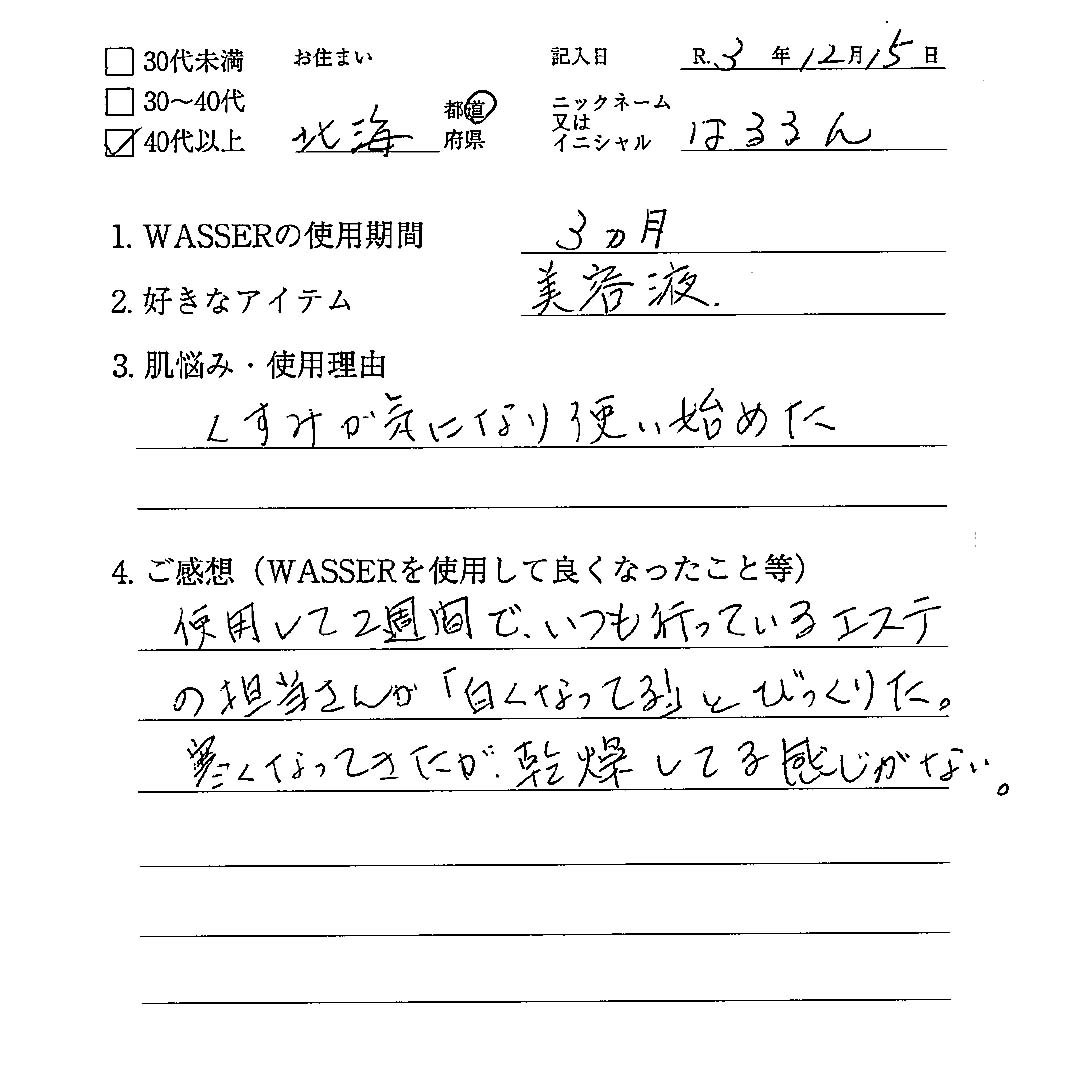 ☐ 30代未満 お住まい 記入日 R.3年12月15日
☐ 30〜40代 北海 都道府県 ニックネーム又はイニシャル はるるん
☑ 40代以上
1. WASSERの使用期間 3ヵ月
2. 好きなアイテム 美容液.
3. 肌悩み・使用理由
くすみが気になり使い始めた
4. ご感想（WASSERを使用して良くなったこと等）
使用して2週間で、いつも行っているエステ
の担当さんが「白くなってる!」とびっくりた。
寒くなってきたが、乾燥してる感じがない。